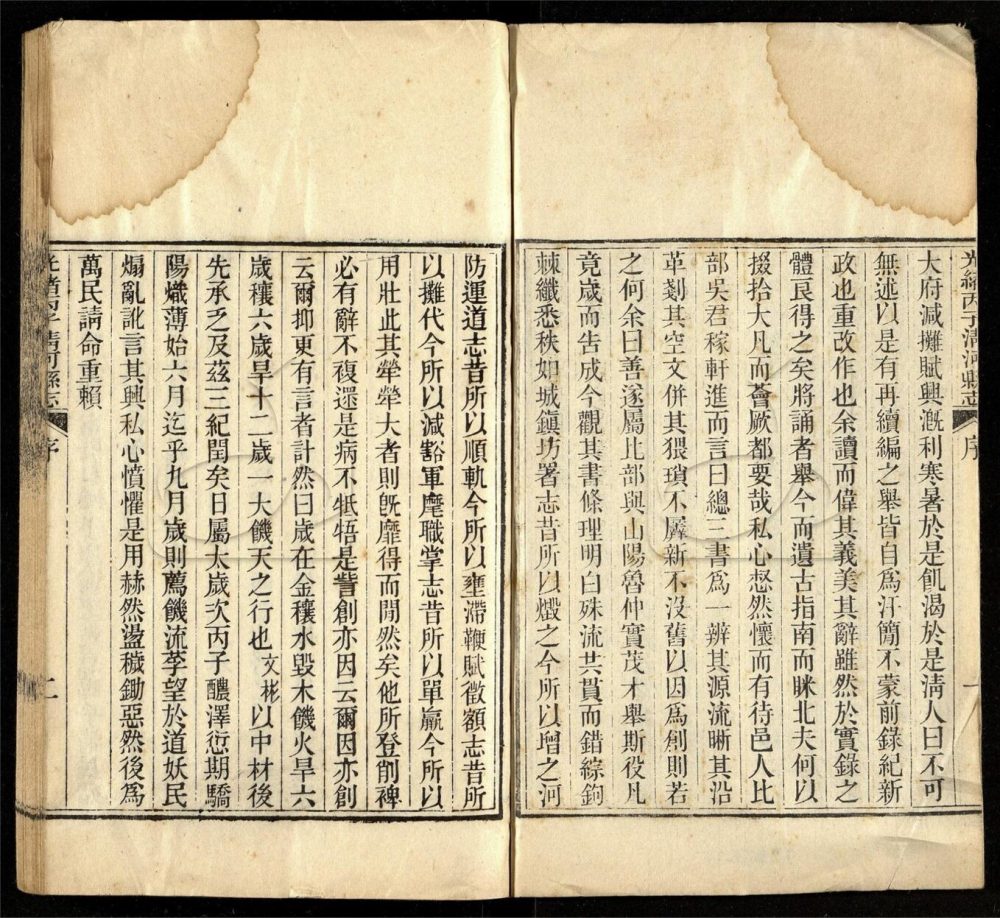 光緒丙子清河縣志
序
一
大府減攤賦興漑利寒暑於是飢渴於是淸人曰不可
無述以是有再續編之舉皆自爲汗簡不蒙前錄紀新
政也重改作也余讀而偉其義美其辭雖然於實錄之
體良得之矣將誦者舉今而遺古指南而眯北夫何以
掇拾大凡而薈厥都要哉私心惄然懷而有待邑人比
部吳君稼軒進而言曰總三書爲一辨其源流晰其沿
革剗其空文併其猥瑣不羼新不沒舊以因爲創則若
之何余曰善遂屬比部與山陽魯仲實茂才舉斯役凡
竟歲而告成今觀其書條理明白殊流共貫而錯綜鉤
棘纖悉秩如城鎭坊署志昔所以燬之今所以增之河
防運道志昔所以順軌今所以壅滯鞭賦徵額志昔所
以攤代今所以減豁軍麾職掌志昔所以單羸今所以
用壯此其犖犖大者則旣靡得而閒然矣他所登削裨
必有辭不複還是病不牴牾是訾創亦因云爾因亦創
云爾抑更有言者計然曰歲在金穰水毀木饑火旱六
歲穰六歲旱十二歲一大饑天之行也文彬以中材後
先承乏及茲三紀閏矣日屬太歲次丙子醲澤愆期驕
陽熾薄始六月迄乎九月歲則薦饑流莩望於道妖民
煽亂訛言其興私心憤懼是用赫然盪穢鋤惡然後爲
萬民請命重賴
光緒丙子清河縣志
序
二